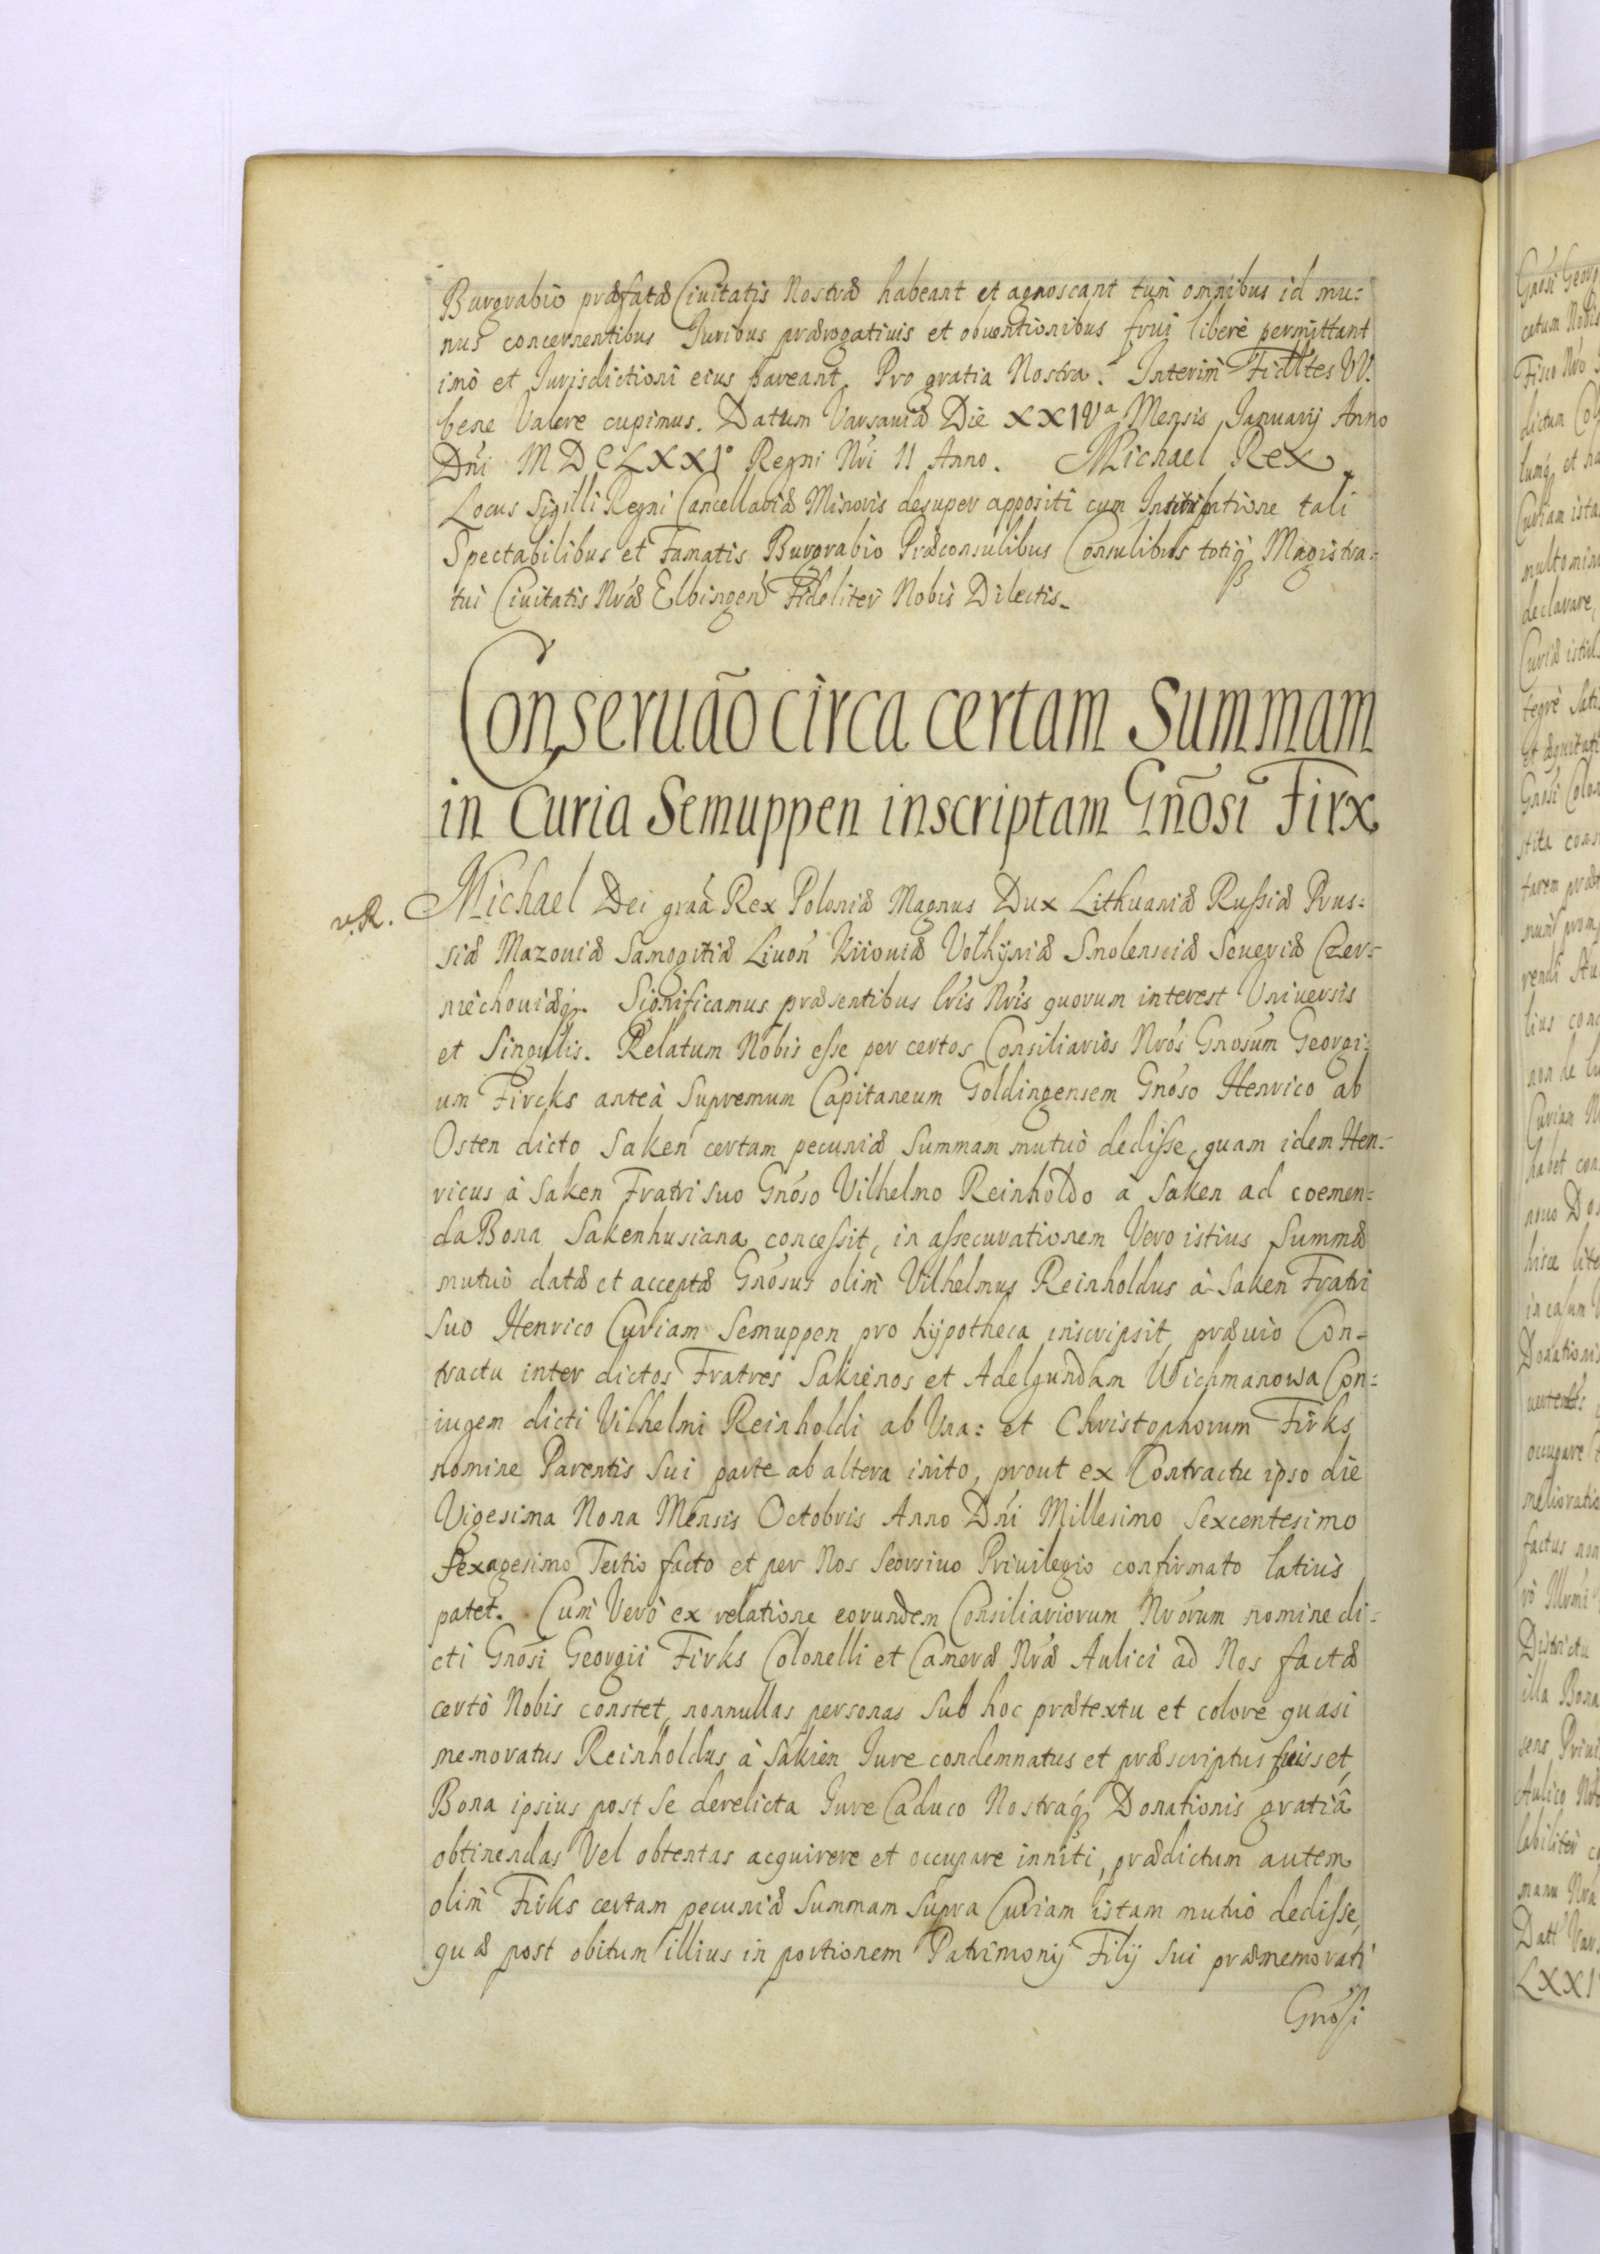 Burgrabio præfatæ Ciuitatis Nostræ habeant et agnoscant tum omnibus id mu:
nus concernentibus Juribus prærogatiuis et obuentionibus frui liberè permittant
imò et Jurisdictioni eius pareant, Pro gratia Nostra. Interim Fidttes VV.
bene Valere cupimus. Datum Varsauiæ Die XXIVa Mensis Januarij Anno
Dni MDCLXXIo Regni Nri II Anno. Michael Rex
Locus Sigilli Regni Cancellariæ Minoris desuper appositi cum Intitulatione tali
Spectabilibus et Famatis Burgrabio Præconsulibus Consulibus totiq Magistra:
tui Ciuitatis Nræ Elbingen Fideliter Nobis Dilectis.
Conseruão circa certam Summam
in Curia Semuppen inscriptam Gñosi Firx
v.R. Michael Dei graâ Rex Poloniæ Magnus Dux Lithuaniæ Russiæ Prus:
siæ Mazouiæ Samogitiæ Liuon Kiiouiæ Volhyniæ Smolensciæ Seueriæ Czer:
niechouiæq. Significamus præsentibus lris Nris quorum interest Vniuersis
et Singulis. Relatum Nobis esse per certos Consiliarios Nros Gnosum Georgi:
um Fircks anteà Supremum Capitaneum Goldingensem Gnoso Henrico ab
Osten dicto Saken certam pecuniæ Summam mutuò dedisse, quam idem Hen:
ricus à Saken Fratri suo Gnoso Vilhelmo Reinholdo à Saken ad coemen:
da Bona Sakenhusiana concessit, in assecurationem Vero istius Summæ
mutuò datæ et acceptæ Gnosus olim Vilhelmus Reinholdus à Saken Fratri
Suo Henrico Curiam Semuppen pro hypotheca inscripsit, præuio Con:
tractu inter dictos Fratres Sakienos et Adelgundam Wichmanowa Con:
iugem dicti Vilhelmi Reinholdi ab Vna: et Christophorum Firks
nomine Parentis Sui parte ab altera inito, prout ex Contractu ipso die
Vigesima Nona Mensis Octobris Anno Dni Millesimo Sexcentesimo
Sexagesimo Tertio facto et per Nos Seorsiuo Priuilegio confirmato latius
patet. Cum Verò ex relatione eorundem Consiliariorum Nrorum nomine di:
cti Gnosi Georgii Firks Colonelli et Cameræ Nræ Aulici ad Nos factæ
certò Nobis constet, nonnullas personas Sub hoc prætextu et colore quasi
memoratus Reinholdus à Sakien Jure condemnatus et præscriptus fuisset,
Bona ipsius post Se derelicta Jure Caduco Nostraq Donationis gratiâ
obtinendas Vel obtentas acquirere et occupare inniti, prædictum autem
olim Firks certam pecuniæ Summam Supra Curiam istam mutuò dedisse,
quæ post obitum illius in portionem Patrimonij Filij Sui præmemorati
Gnosi